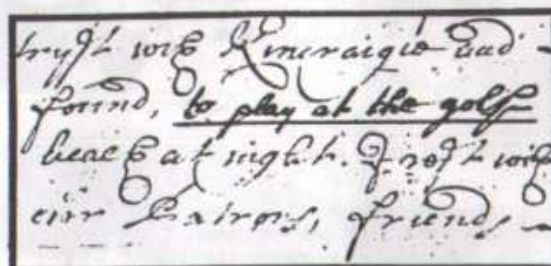 tryst with Kincraigie and
found, to play at the golf
beach at night. tryst with
our Patrons, friends